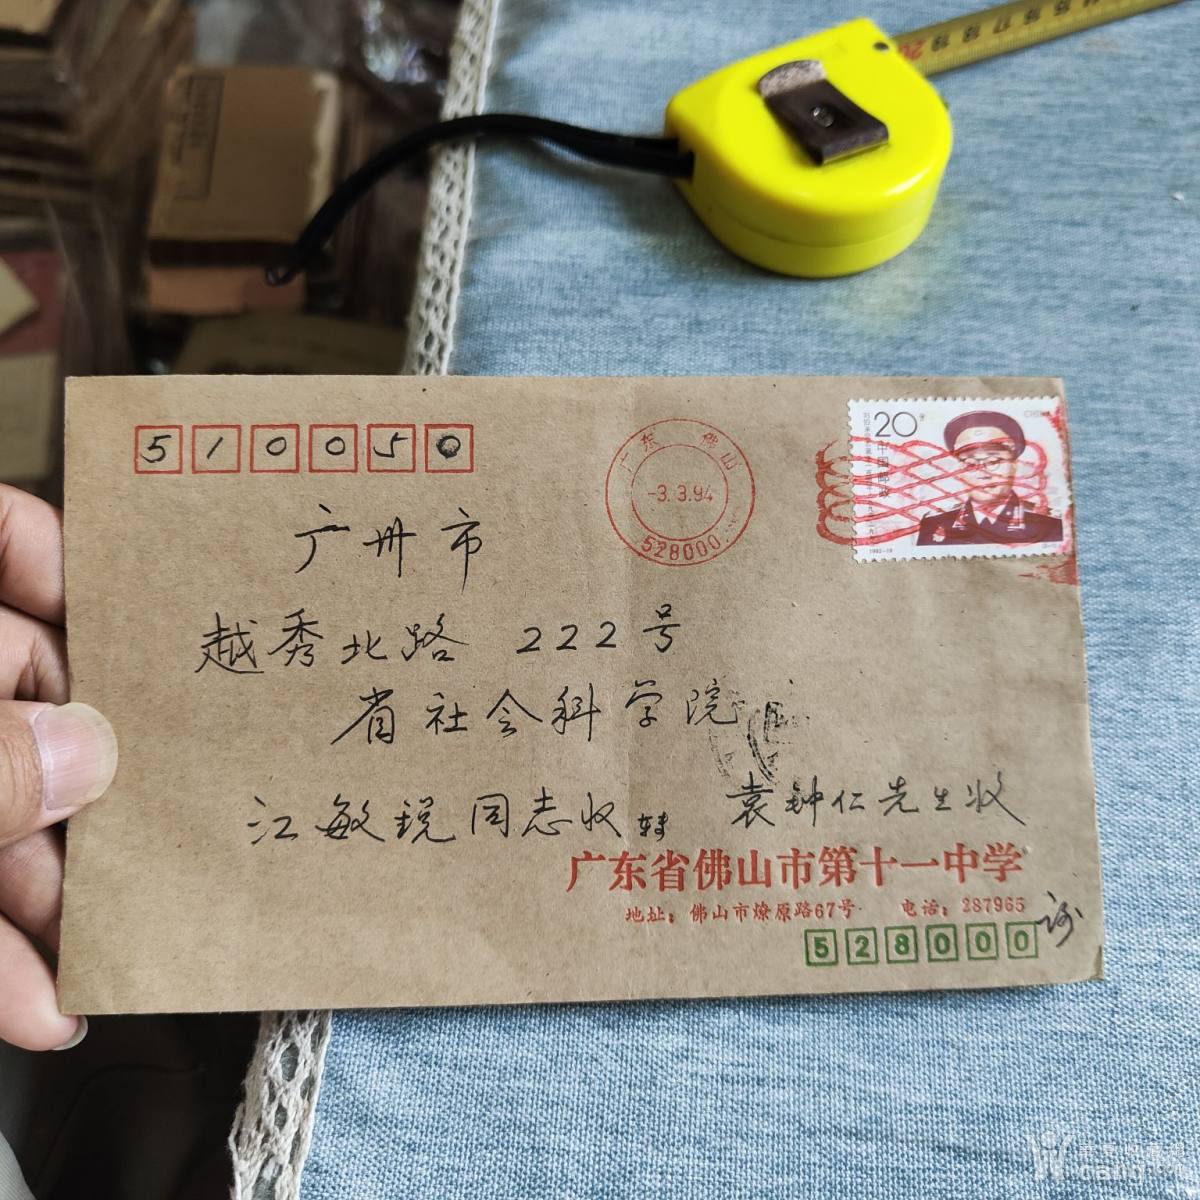 14 15 16 17 18 19 20
510050
广东佛山
-3.3.94
528000
20分
中国邮政
1992-18
广州市
越秀北路 222号
省社会科学院
江敏锐同志收转 袁钟仁先生收
广东省佛山市第十一中学
地址：佛山市燎原路67号 电话：287965
528000